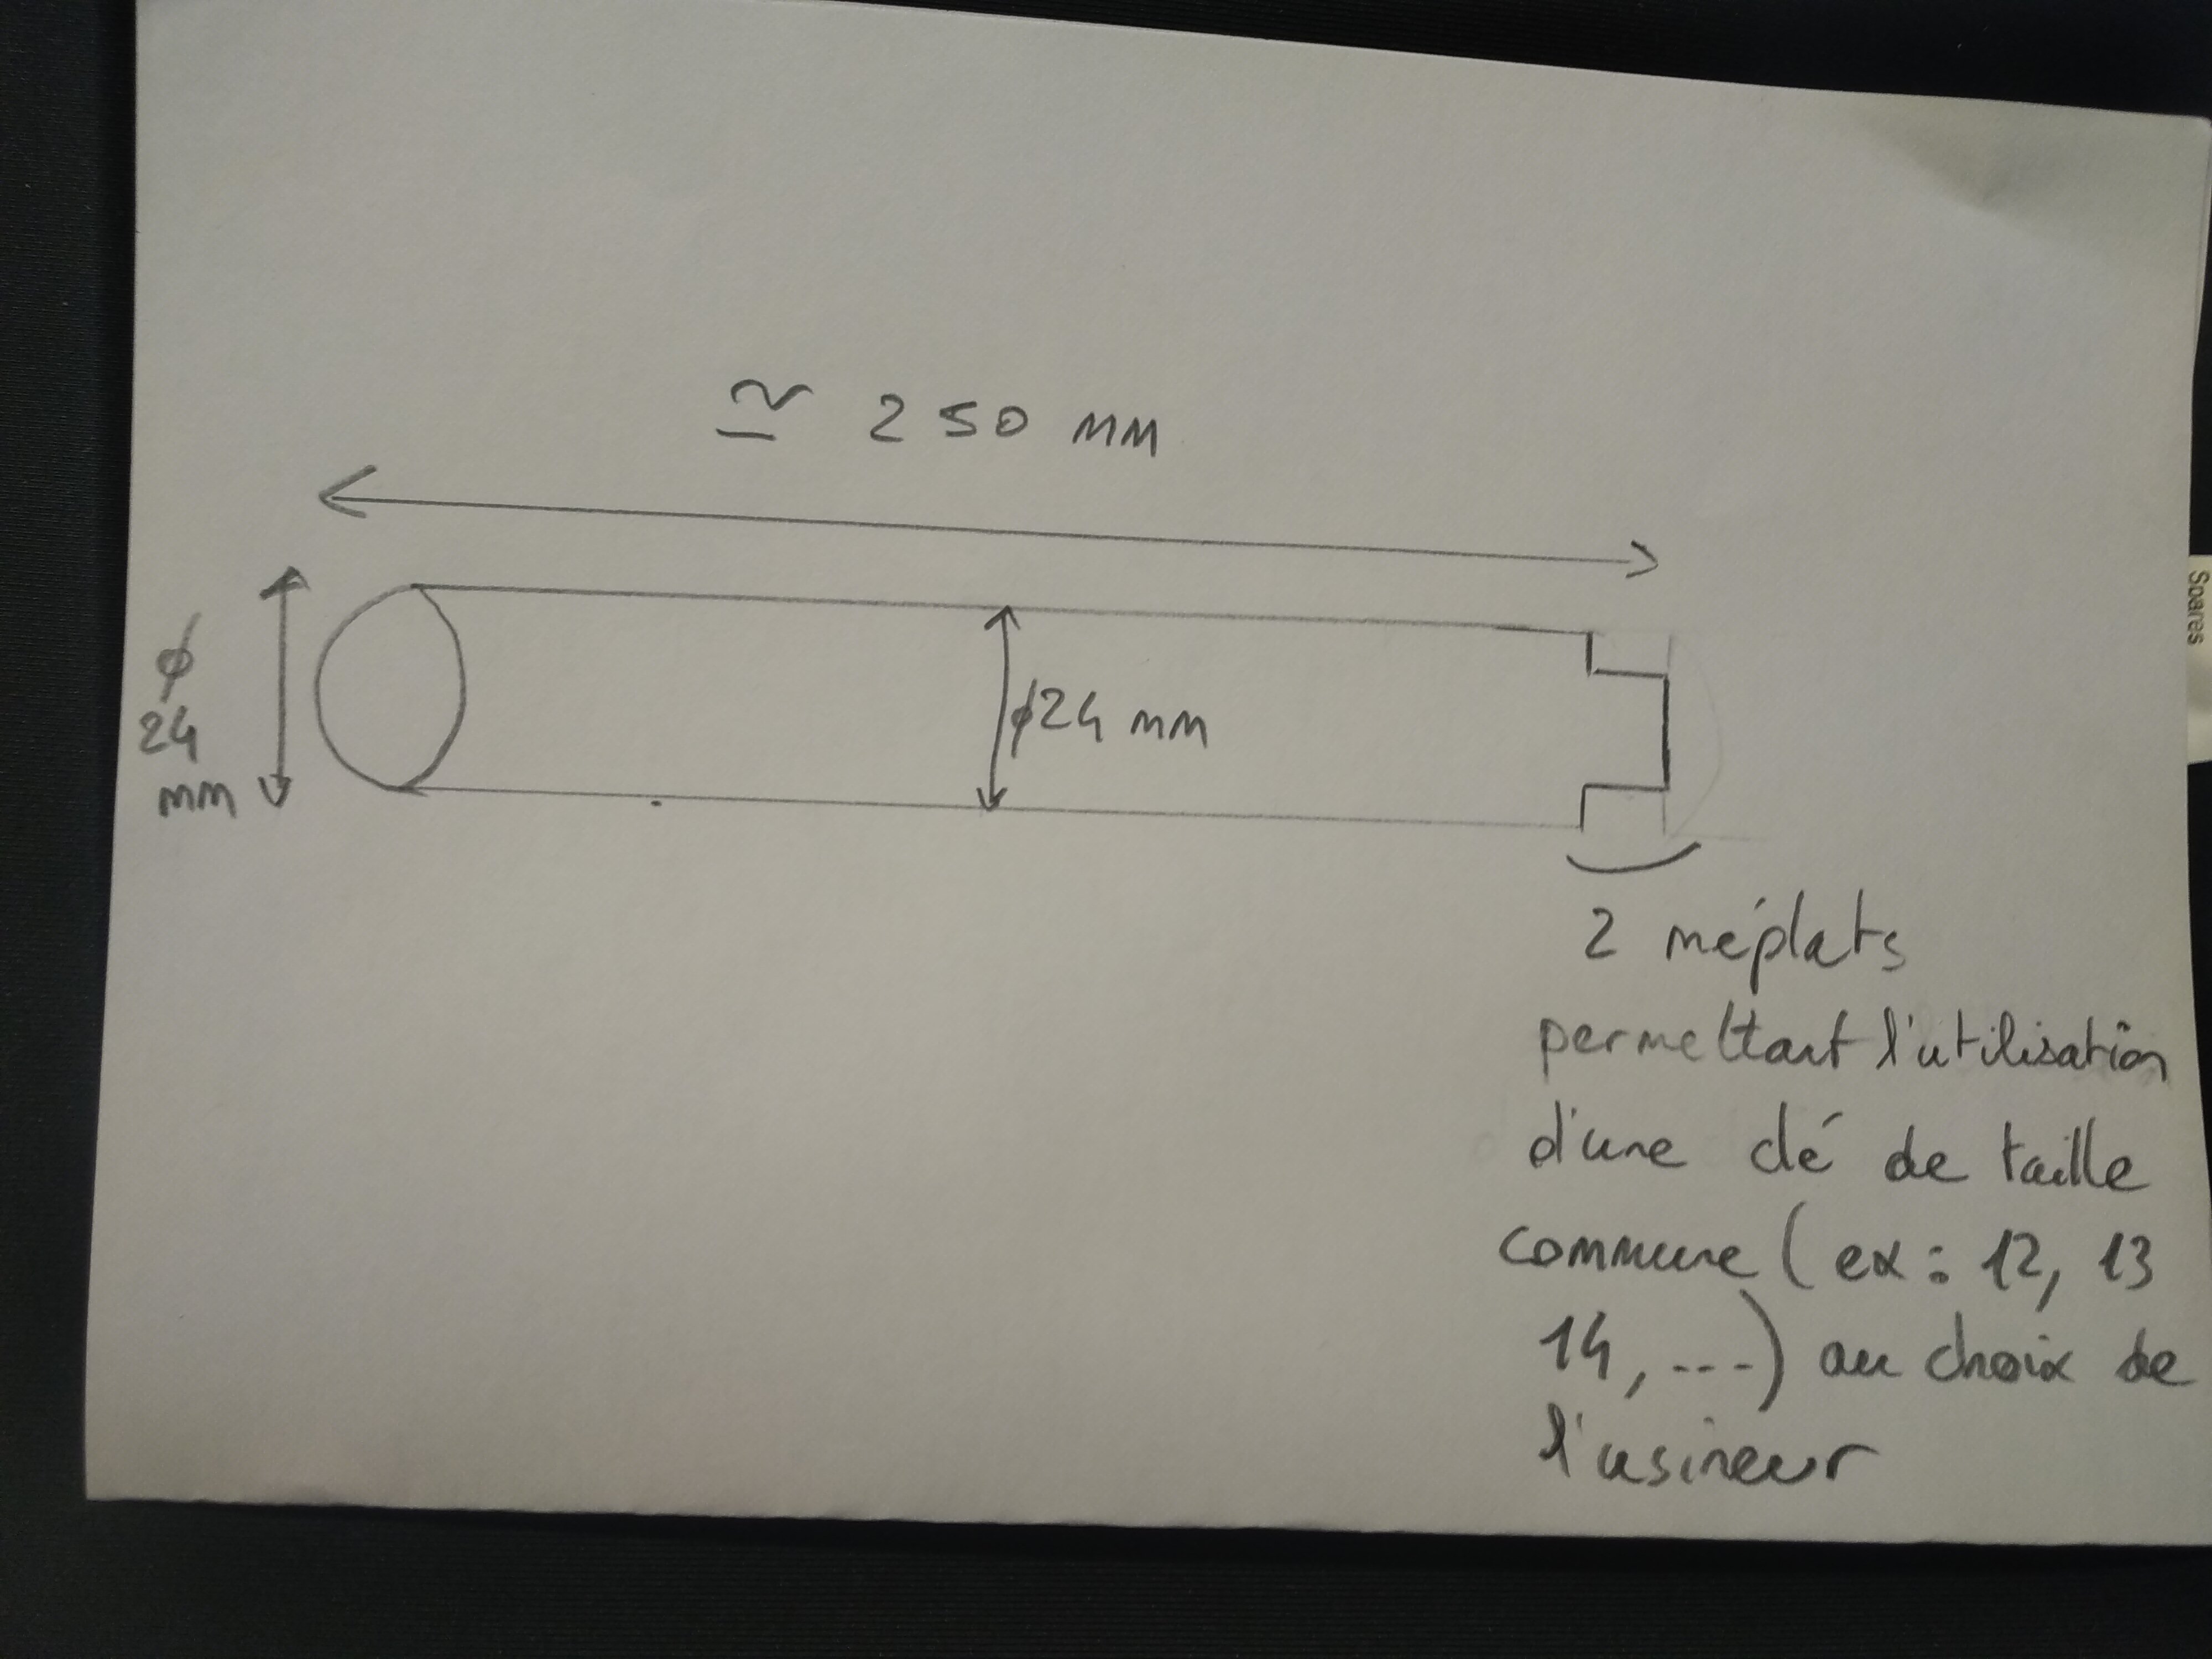 ≃ 250 mm
ϕ
24
mm
ϕ24 mm
2 méplats
permettant l'utilisation
d'une clé de taille
commune (ex : 12, 13
14, ---) au choix de
l'usineur
Spares